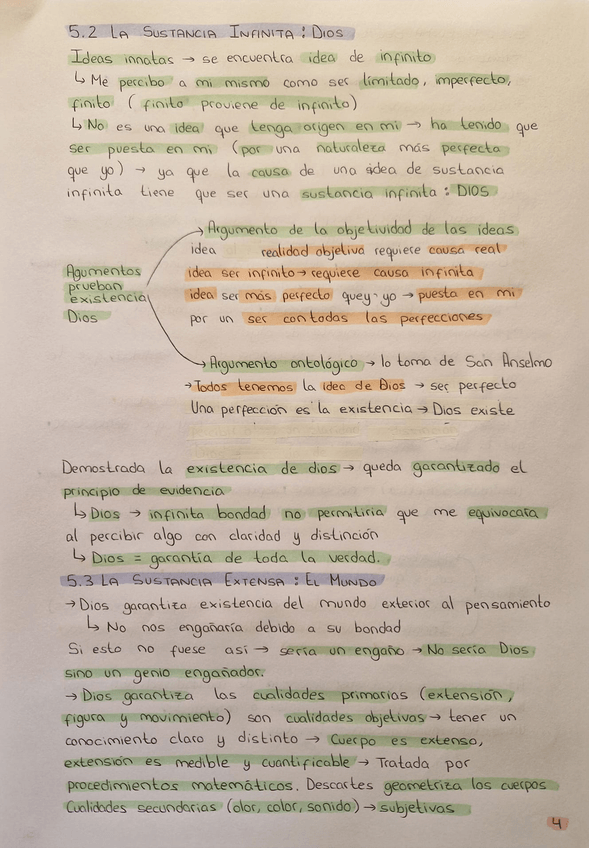 5.2 LA SUSTANCIA INFINITA: DIOS
Ideas innatas → se encuentra idea de infinito
↳ Me percibo a mi mismo como ser limitado, imperfecto,
finito (finito proviene de infinito)
↳ No es una idea que tenga origen en mi → ha tenido que
ser puesta en mi (por una naturaleza más perfecta
que yo) → ya que la causa de una idea de sustancia
infinita tiene que ser una sustancia infinita: DIOS
Agumentos
prueban
existencia
Dios
→ Argumento de la objetividad de las ideas
idea realidad objetiva requiere causa real
idea ser infinito → requiere causa infinita
idea ser más perfecto que yo → puesta en mi
por un ser con todas las perfecciones
→ Argumento ontológico → lo toma de San Anselmo
→ Todos tenemos la idea de Dios → ser perfecto
Una perfección es la existencia → Dios existe
Demostrada la existencia de dios → queda garantizado el
principio de evidencia
↳ Dios → infinita bondad no permitiria que me equivocara
al percibir algo con claridad y distinción
↳ Dios = garantía de toda la verdad.
5.3 LA SUSTANCIA EXTENSA: EL MUNDO
→ Dios garantiza existencia del mundo exterior al pensamiento
↳ No nos engañaría debido a su bondad
Si esto no fuese así → sería un engaño → No sería Dios
sino un genio engañador.
→ Dios garantiza las cualidades primarias (extensión,
figura y movimiento) son cualidades objetivas → tener un
conocimiento claro y distinto → Cuerpo es extenso,
extensión es medible y cuantificable → Tratada por
procedimientos matemáticos. Descartes geometriza los cuerpos
Cualidades secundarias (olor, color, sonido) → subjetivas
4